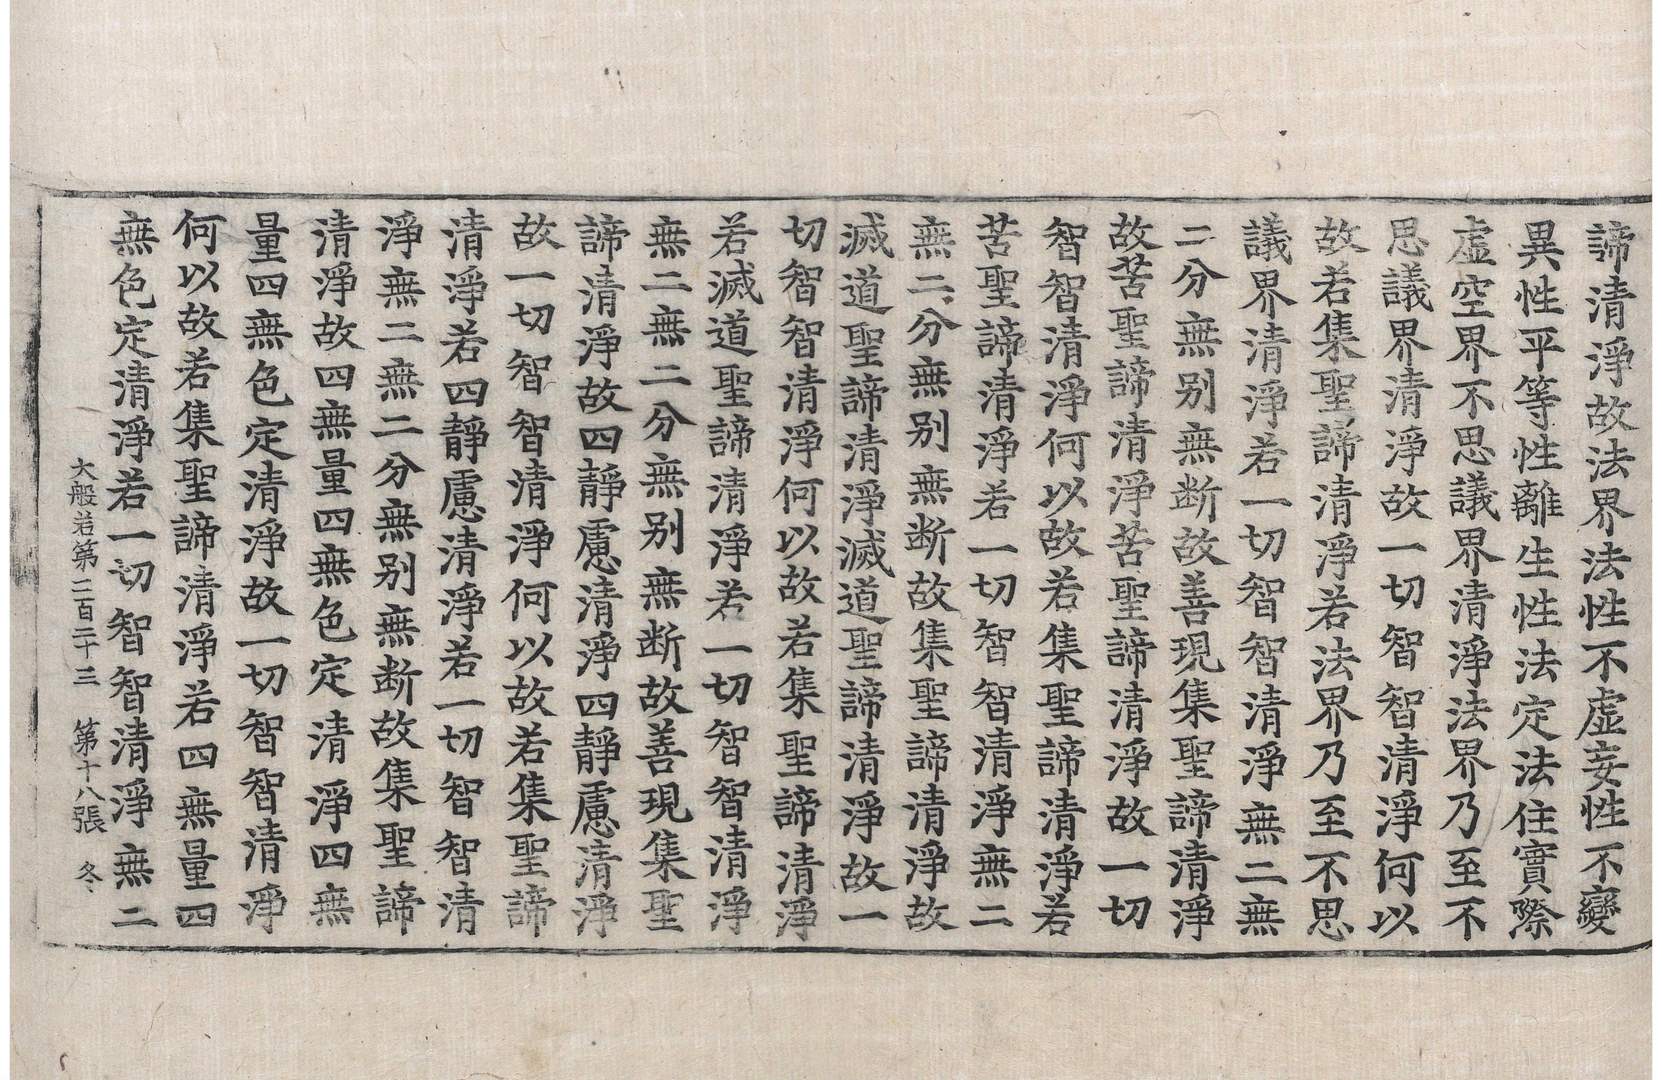 諦清淨故法界法性不虛妄性不變
異性平等性離生性法定法住實際
虛空界不思議界清淨法界乃至不
思議界清淨故一切智智清淨何以
故若集聖諦清淨若法界乃至不思
議界清淨若一切智智清淨無二無
二分無別無断故善現集聖諦清淨
故苦聖諦清淨苦聖諦清淨故一切
智智清淨何以故若集聖諦清淨若
苦聖諦清淨若一切智智清淨無二
無二分無別無断故集聖諦清淨故
滅道聖諦清淨滅道聖諦清淨故一
切智智清淨何以故若集聖諦清淨
若滅道聖諦清淨若一切智智清淨
無二無二分無別無断故善現集聖
諦清淨故四靜慮清淨四靜慮清淨
故一切智智清淨何以故若集聖諦
清淨若四靜慮清淨若一切智智清
淨無二無二分無別無断故集聖諦
清淨故四無量四無色定清淨四無
量四無色定清淨故一切智智清淨
何以故若集聖諦清淨若四無量四
無色定清淨若一切智智清淨無二
大般若第二百二十三 第十八張 冬